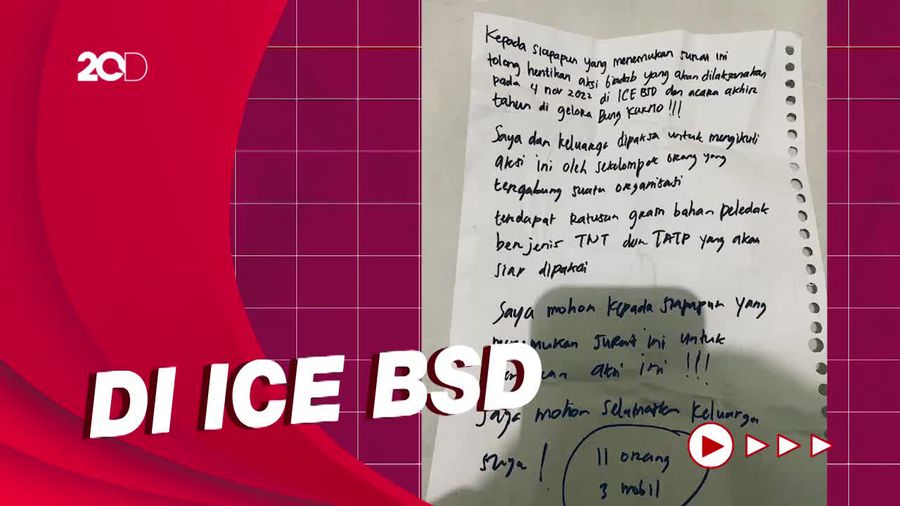 20D
Kepada siapapun yang menemukan surat ini
tolong hentikan aksi biadab yang akan dilaksanakan
pada 4 nov 2022 di ICE BSD dan acara akhir
tahun di gelora Bung KARNO !!!
Saya dan keluarga dipaksa untuk mengikuti
aksi ini oleh sekelompok orang yang
tergabung suatu organisasi
terdapat Ratusan gram bahan peledak
berjenis TNT dan TATP yang akan
siap dipakai
Saya mohon kepada siapapun yang
menemukan surat ini untuk
aksi ini !!!
DI ICE BSD
Saya mohon selamatkan keluarga
saya !
11 orang
3 mobil